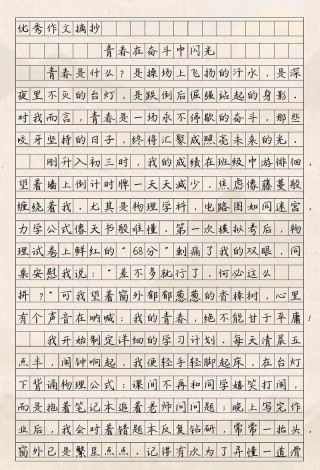 优秀作文摘抄
青春在奋斗中闪光
青春是什么？是操场上飞扬的汗水，是深
夜里不灭的台灯，是跌倒后倔强站起的身影。
对我而言，青春是一场永不停歇的奋斗，那些
咬牙坚持的日子，终将汇聚成照亮未来的光。
刚升入初三时，我的成绩在班级中游徘徊，
望着墙上倒计时牌一天天减少，焦虑像藤蔓般
缠绕着我。尤其是物理学科，电路图如同迷宫，
力学公式像天书般难懂。第一次模拟考后，物
理试卷上鲜红的“68分”刺痛了我的双眼，同
桌安慰我说：“差不多就行了，何必这么
拼？”可我望着窗外郁郁葱葱的香樟树，心里
有个声音在呐喊：我的青春，绝不能甘于平庸！
我开始制定详细的学习计划，每天清晨五
点半，闹钟响起，我便轻手轻脚起床，在台灯
下背诵物理公式；课间不再和同学嬉笑打闹，
而是抱着笔记本追着老师问问题；晚上写完作
业后，我会对着错题本反复钻研，常常一抬头，
窗外已是繁星点点。记得有次为了弄懂一道滑